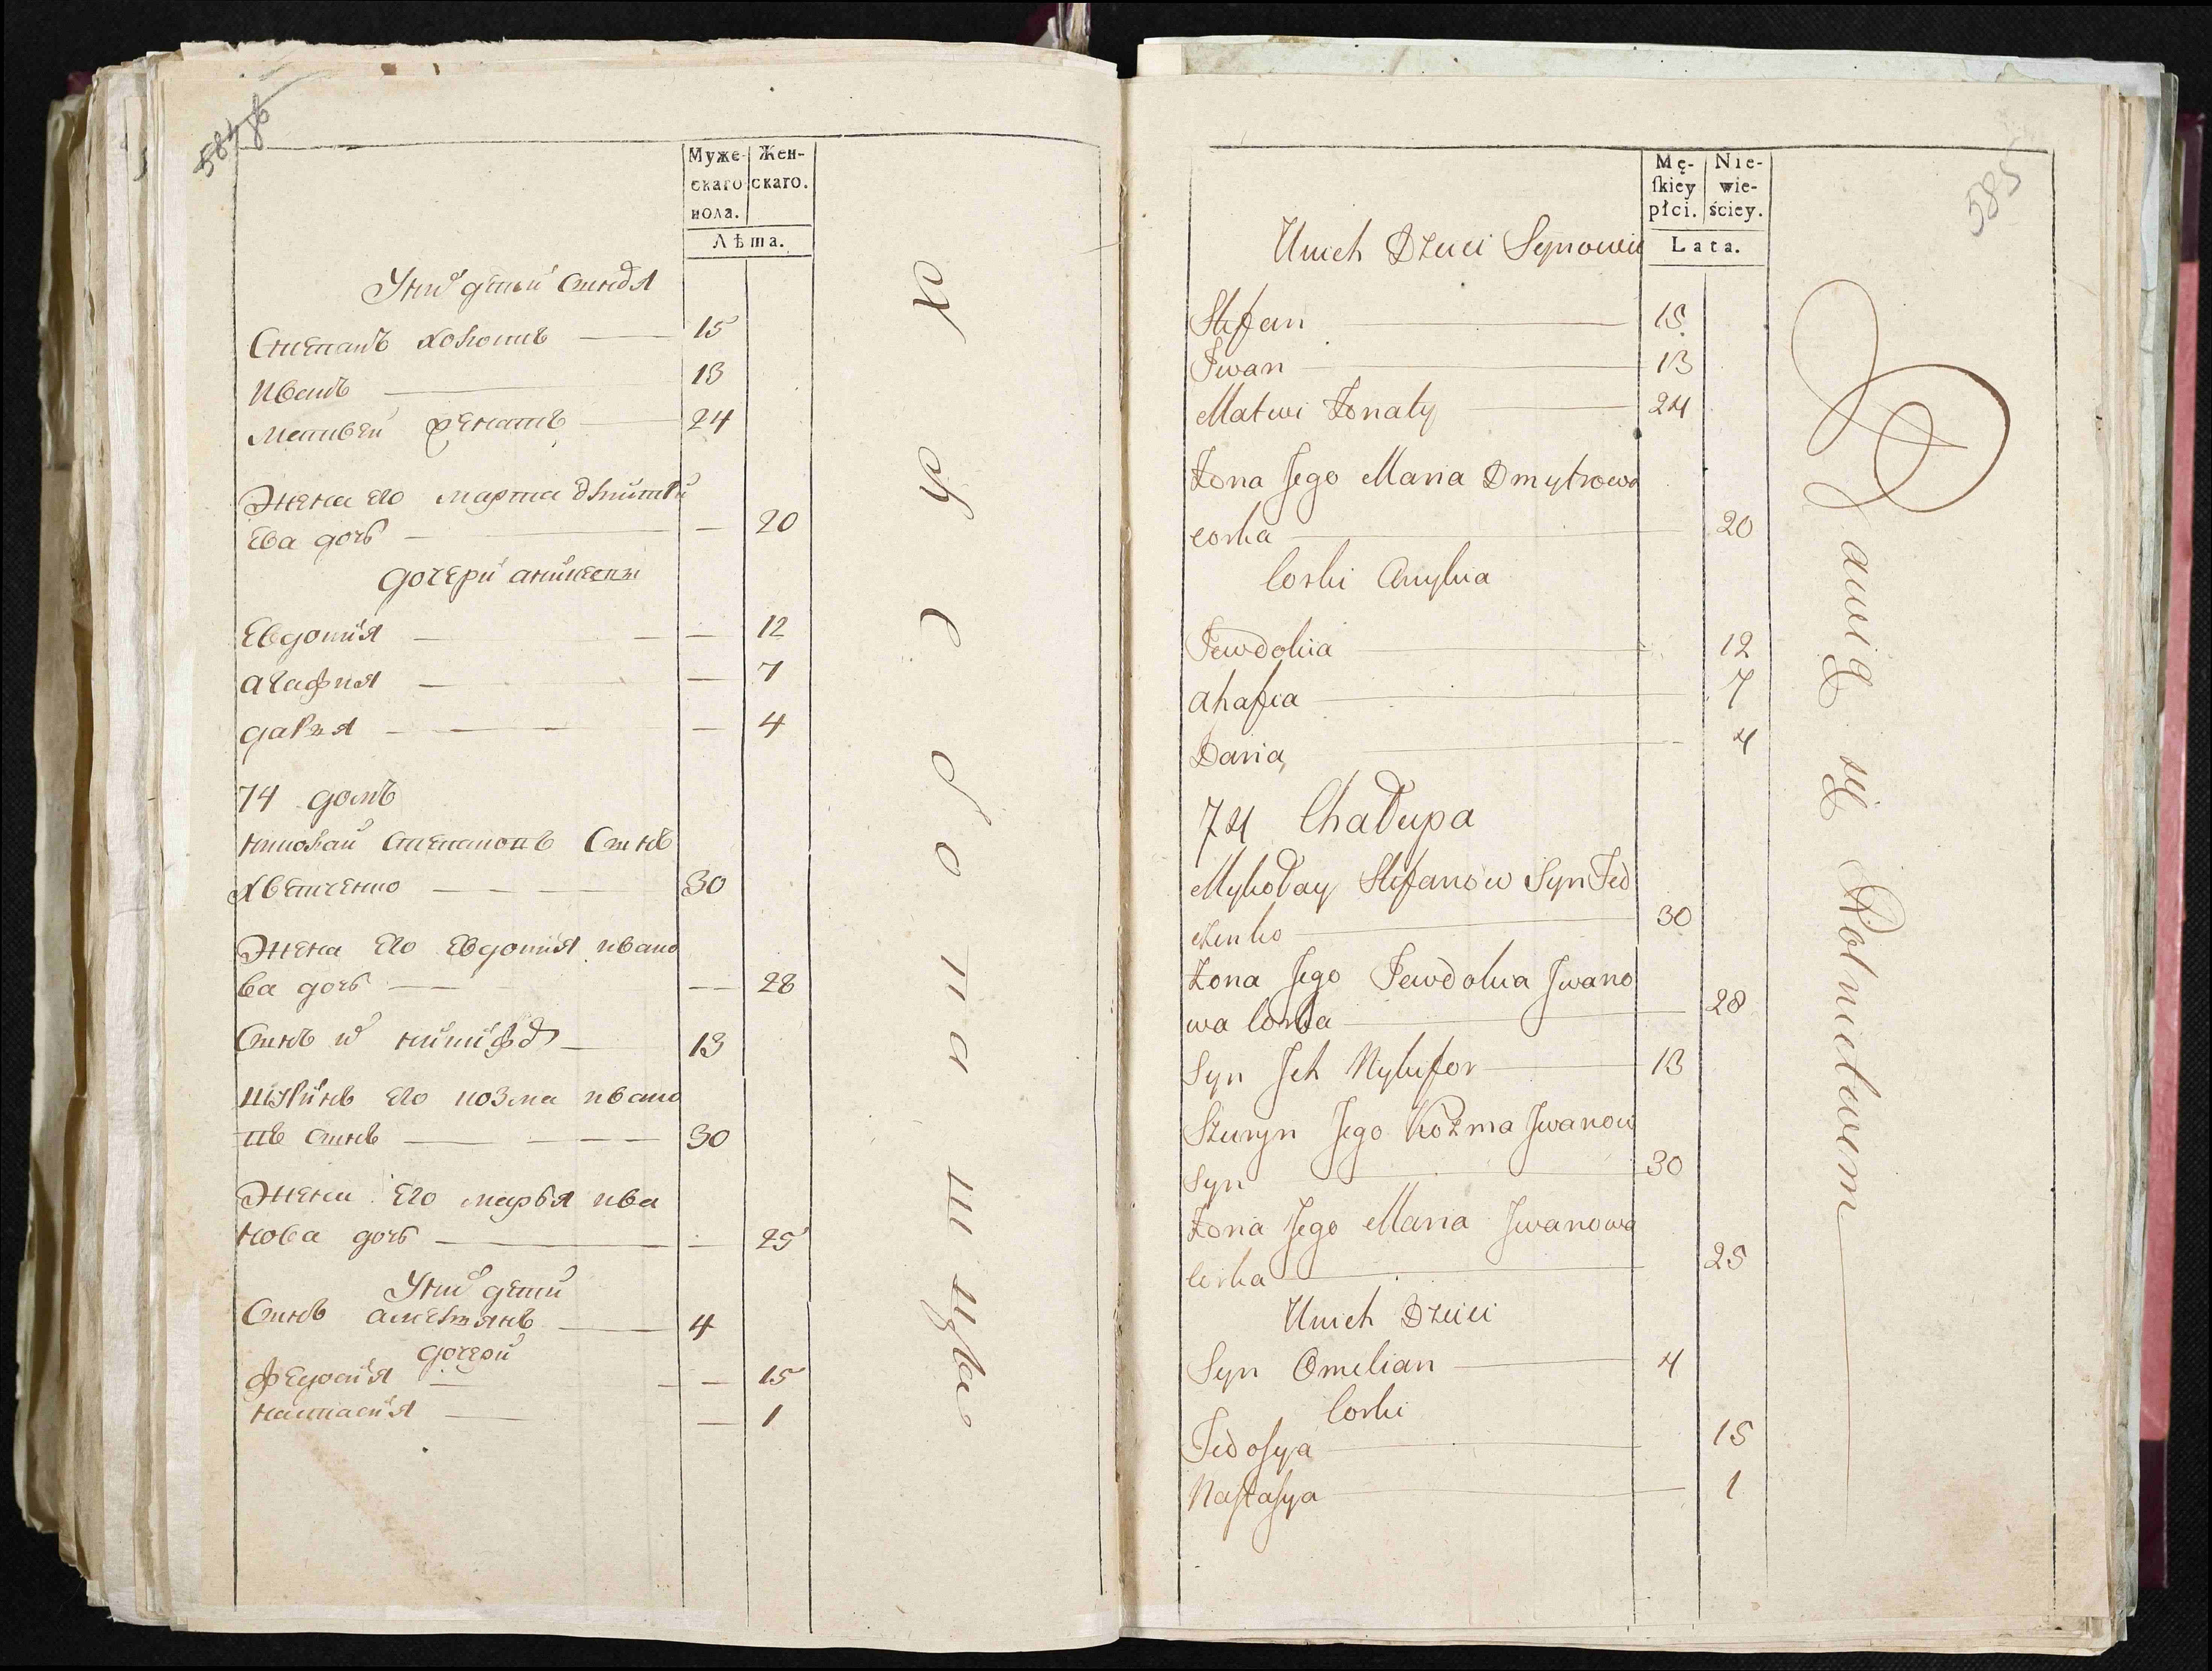 584 об
Муже- Жен-
скаго скаго.
пола.
Лѣта.
Степанъ холостъ 15
Иванъ 13
Матвей женатъ 24
Жена его марта дмитри
ева дочь 20
дочери
Евдотия 12
агафия 7
дарья 4
74 домъ
николай степановъ Сынъ
хветченко 30
Жена его Евдотия ивано
ва дочь 28
Сынъ их никифор 13
шуринъ его козма ивано
въ сынъ 30
Жена его марья ива
нова дочь 25
У них детей
Сынъ амельянъ 4
дочери
федосия 15
настасия 1
Хлебопашцы
585
Mę- Nie-
ſkiey wie-
płci. ściey.
Lata.
Unich Dzieci Synowie
Stefan 15
Jwan 13
Matwi Żonaty 24
Żona Jego Maria Dmytrowa
corka 20
Corki
Jewdokia 12
Ahafia 7
Daria 4
74 Chałupa
Mykołay Stefanow Syn Fed
czenko 30
Żona Jego Jewdokia Jwano
wa Corka 28
Syn Jch Nykifor 13
Szuryn Jego Kozma Jwanow
Syn 30
Żona Jego Maria Jwanowa
Corka 25
Unich Dzieci
Syn Omelian 4
Corki
Fedoſya 15
Naſtaſya 1
Bawią się Rolnictwem